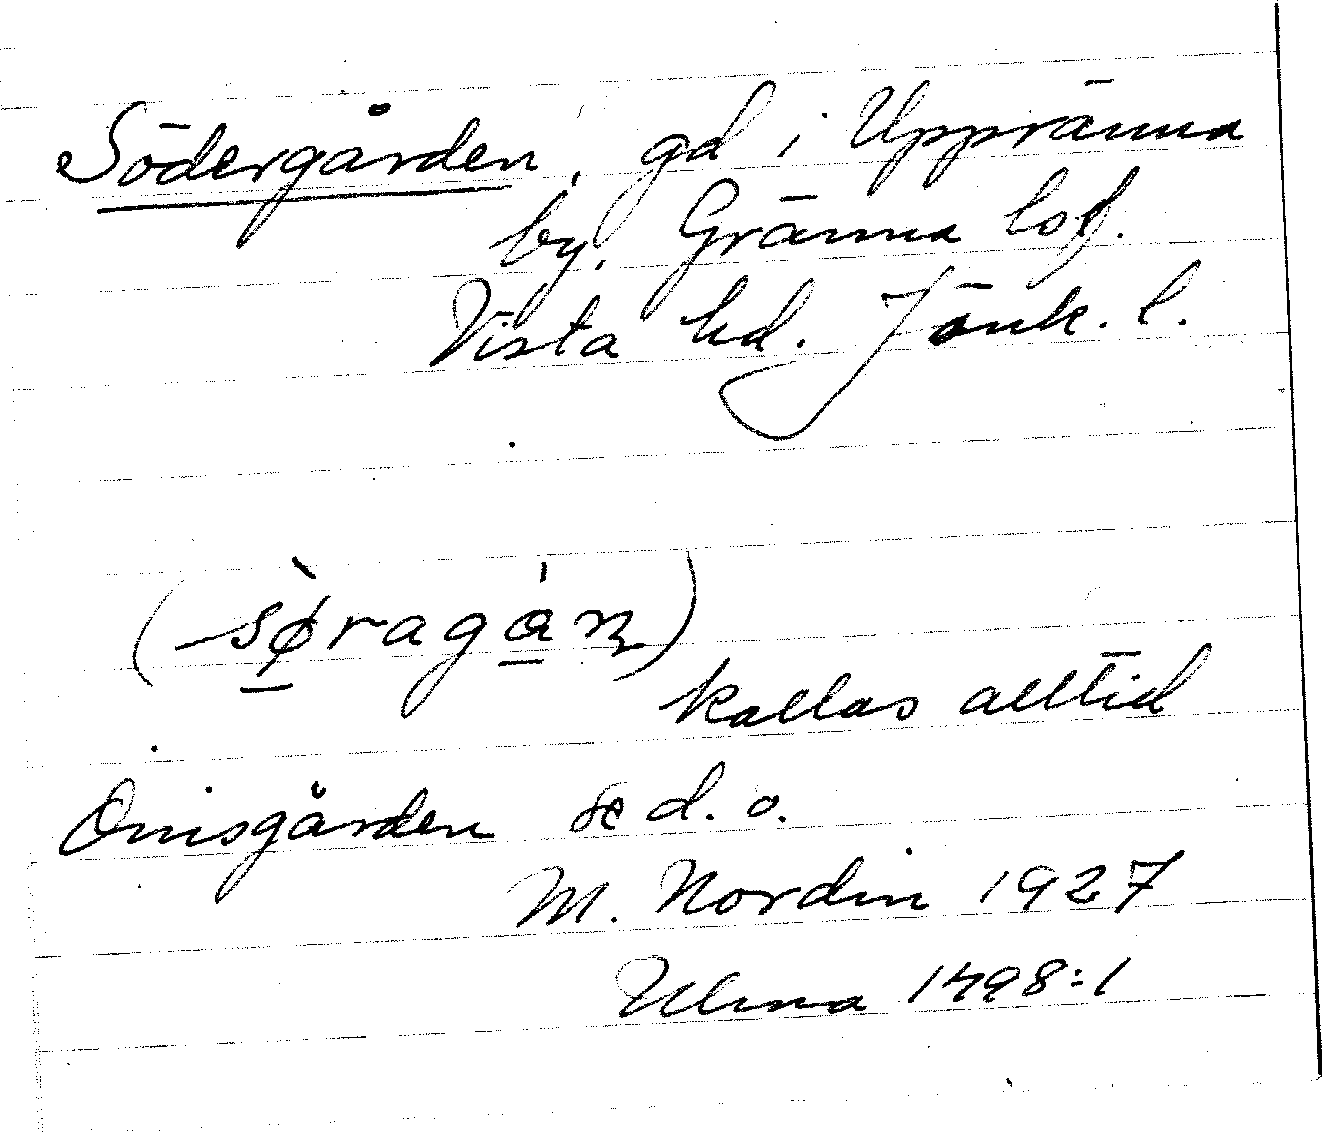 Södergården, gd i Uppränna
by, Gränna lsf.
Vista hd. Jönk. l.
(sø̀ragán)
kallas alltid
Onisgården se d. o.
M. Nordin 1927
Ulma 1498:1